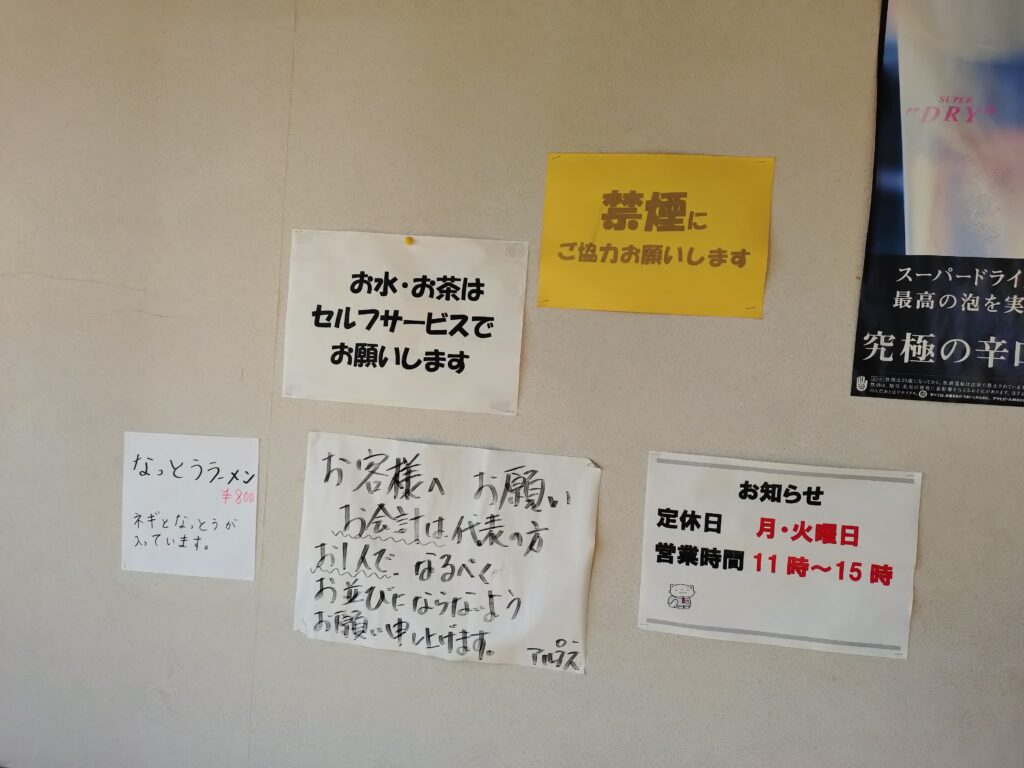 禁煙に
ご協力お願いします
お水・お茶は
セルフサービスで
お願いします
なっとうラーメン
¥800
ネギとなっとうが
入っています。
お客様へ お願い
お会計は代表の方
お1人で なるべく
お並びにならないよう
お願い申し上げます。
アルプス
お知らせ
定休日 月・火曜日
営業時間 11時～15時
SUPER
"DRY"
スーパードライ
最高の泡を実
究極の辛口